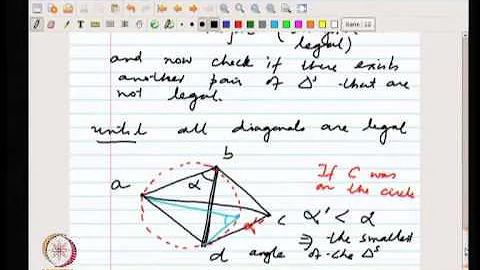 legal)
and now check if there exists
another pair of Δs that are
not legal.
until all diagonals are legal
b
a
α
If C was
on the circle
c
α'
α' < α
d
angle
⇒ the smallest
of the Δs